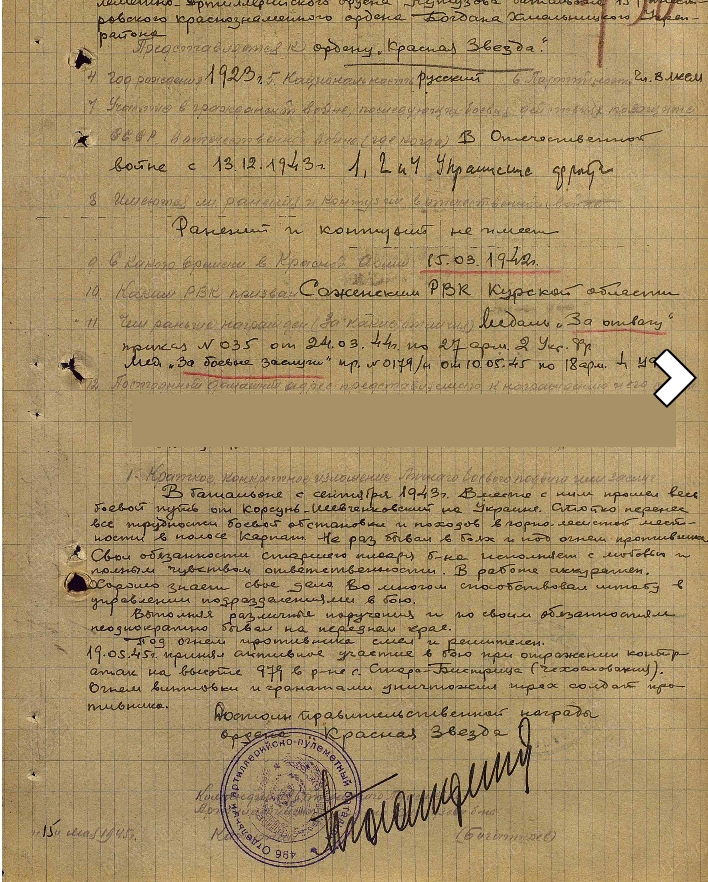 ровского краснознаменного ордена Богдана Хмельницкого Укреп-
района
Представляется к ордену "Красная Звезда."
4 Год рождения 1923г. 5. Национальность русский 6. Партийность чл. ВЛКСМ
7 Участие в гражданской войне, последующих боевых действиях по защите
СССР и отечественной войне (где, когда) В Отечественной
войне с 13.12.1943г. 1, 2 и 4 Украинские фронты
8 Имеются ли ранения и контузии в отечественной войне
Ранений и контузий не имеет
9. С какого времени в Красной Армии 15.03.1942г.
10. Каким РВК призван Саженским РВК Курской области
11. Чем раньше награжден (за какие отличия) Медаль "За отвагу"
приказ N 035 от 24.03.44г. по 27 арм. 2 Укр. Фр
Мед. "За боевые заслуги" пр. N 0179/н от 10.05.45 по 18 арм. 4 Уф
12. Постоянный домашний адрес представляемого к награждению и его
1. Краткое, конкретное изложение личного боевого подвига или заслуг
В батальоне с сентября 1943г. Вместе с ним прошел весь
боевой путь от Корсунь-Шевченковский на Украине. Стойко перенес
все трудности боевой обстановки и походов в горно-лесистой мест-
ности в полосе Карпат. Не раз бывал в боях и под огнем противника
Свои обязанности старшего писаря б-на исполняет с любовью и
полным чувством ответственности. В работе аккуратен.
Хорошо знает свое дело. Во многом способствовал штабу в
управлении подразделениями в бою.
Выполняя различные поручения и по своим обязанностям
неоднократно бывал на переднем крае.
Под огнем противника смел и решителен.
19.05.45г. принял активное участие в бою при отражении контр-
атак на высоте 979 в р-не с. Старо-Бистрица (Чехословакия).
Огнем винтовки и гранатами уничтожил трех солдат про-
тивника.
Достоин правительственной награды
ордена Красная Звезда
496 Отдельный артиллерийско-пулеметный батальон
Командир
"15" мая 1945г.